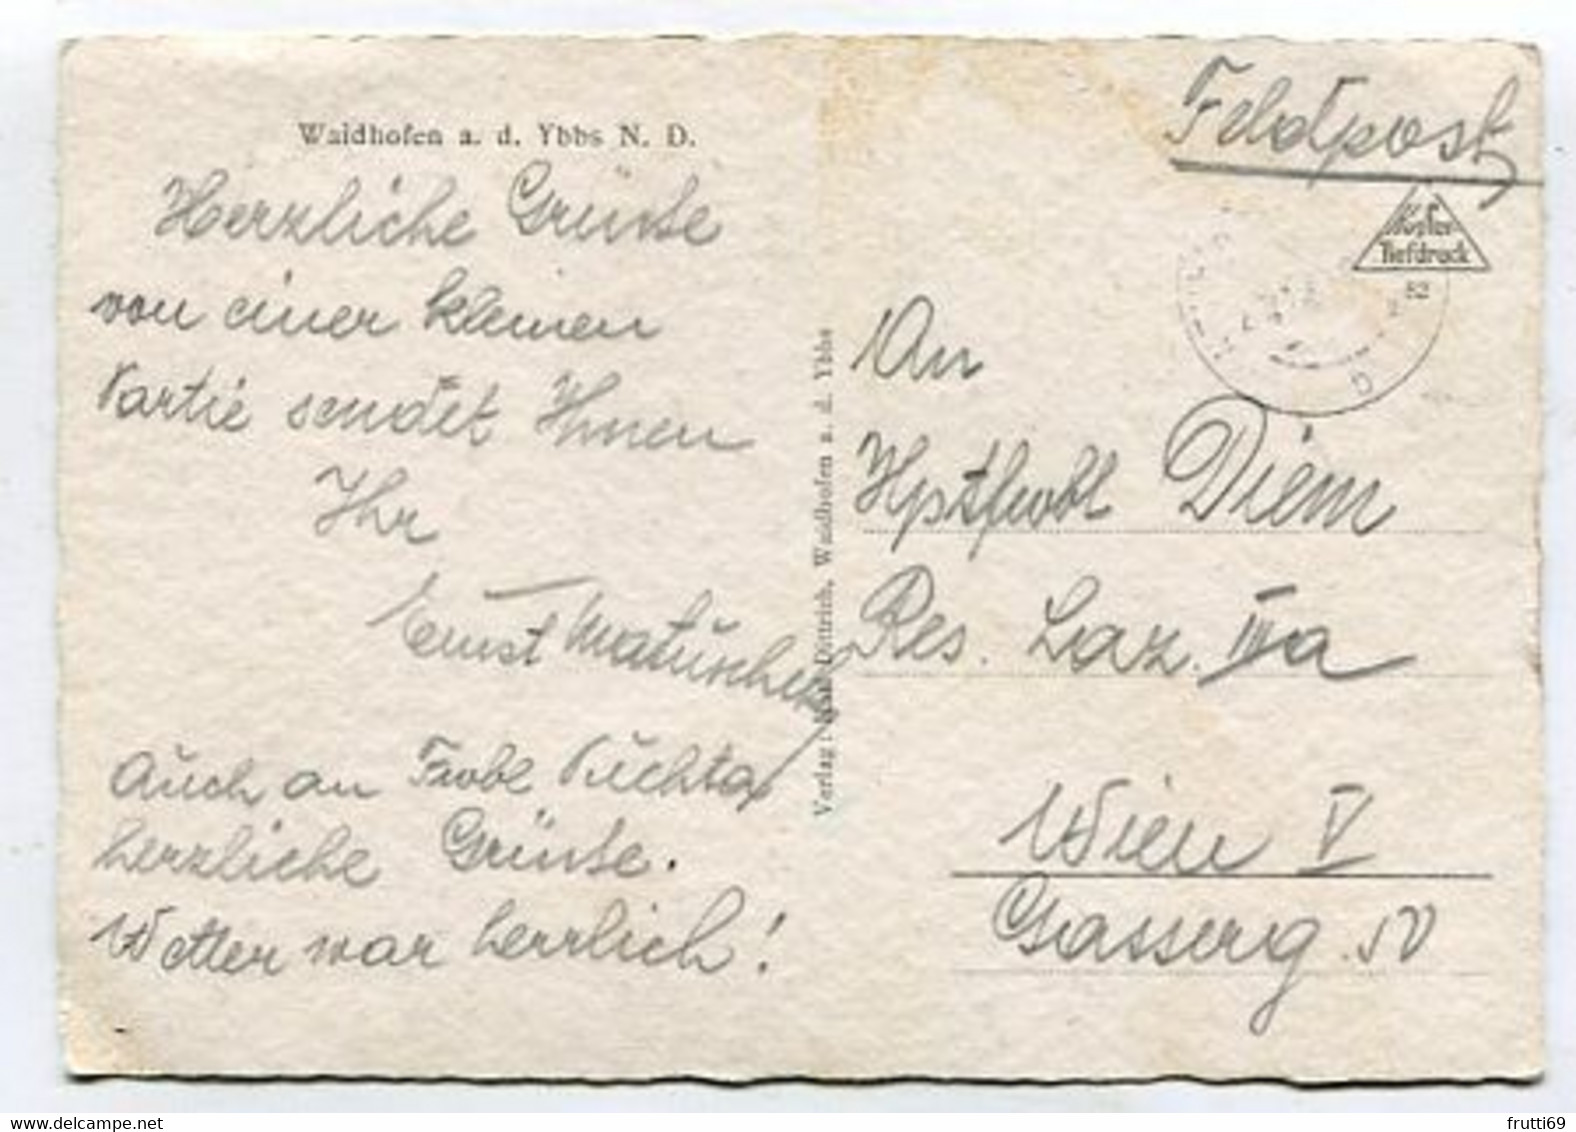 Waidhofen a. d. Ybbs N. D.
Herzliche Grüsse
von einer kleinen
Partie sendet Ihnen
Ihr
Ernst Matuschek
Auch an Frobl Puchta
herzliche Grüsse.
Wetter war herrlich!
Verlag: Dittrich, Waidhofen a. d. Ybbs
Feldpost
Kupfer-
Tiefdruck
52
An
Hptfwbl Diem
Res. Laz. IIIa
Wien V
Gasserg.
delcampe.net
frutti69